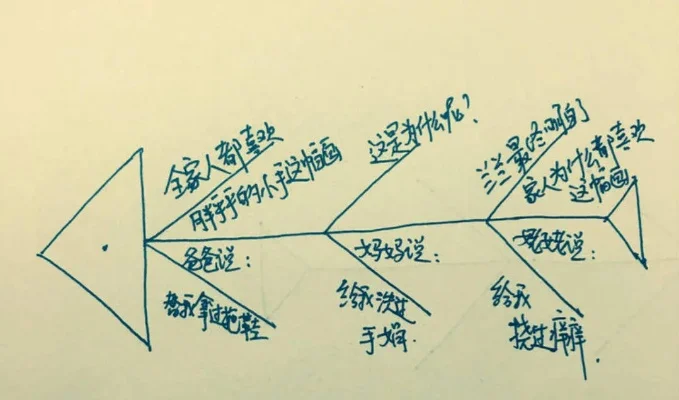 全家人都喜欢
胖乎乎的小手这幅画
这是为什么呢?
兰兰最终明白了
家人为什么都喜欢
这幅画
爸爸说:
替我拿过拖鞋
妈妈说:
给我洗过
手绢.
姥姥说:
给我
挠过痒痒